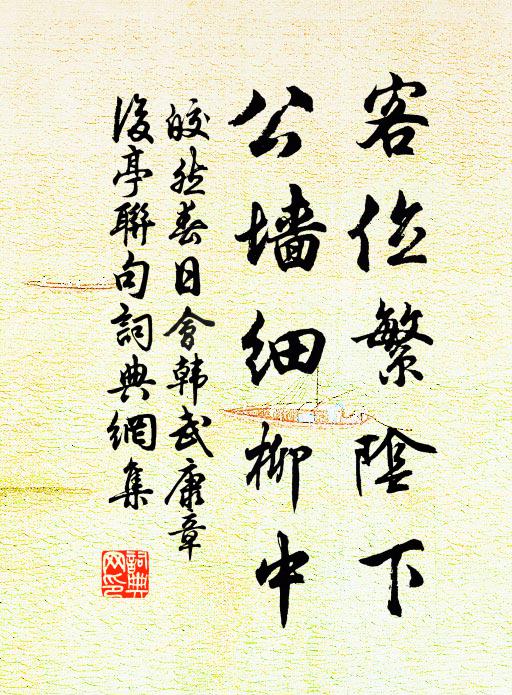 客位繁陰下
公墻細柳中
皎然春日會韩武康章
後亭聯句詞典網集
詞典
网印